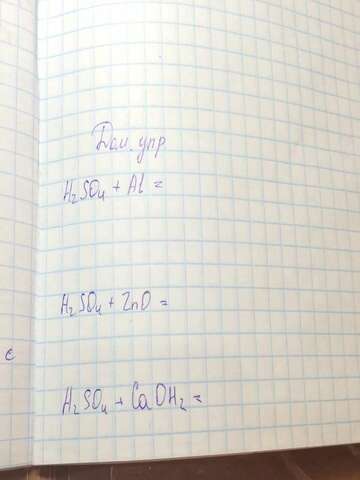 Дом. упр.
H₂SO₄ + Al =
H₂SO₄ + ZnO =
с
H₂SO₄ + CaOH₂ =